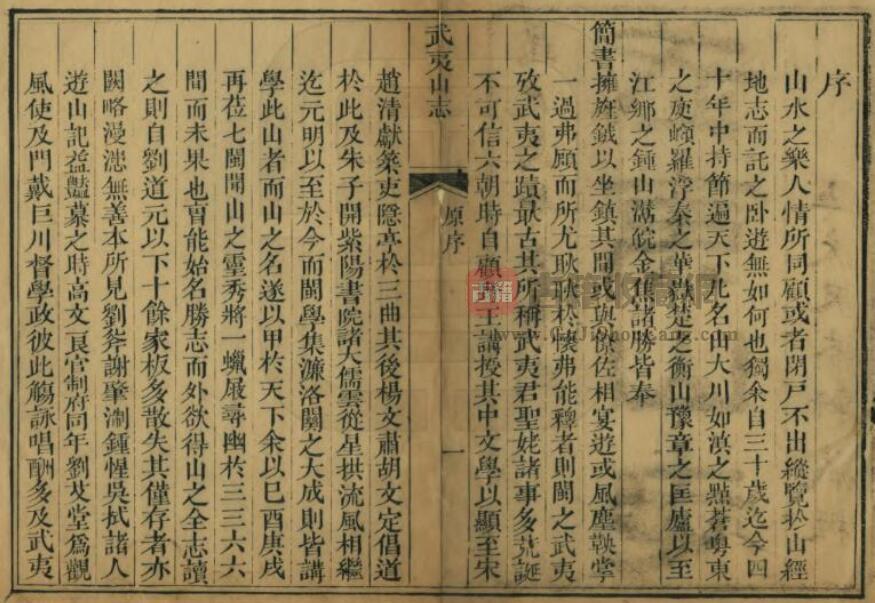 序
山水之樂人情所同顧或者閉戸不出縱覽於山經
地志而託之卧遊無如何也獨余自三十歲迄今四
十年中持節遍天下凡名山大川如滇之點蒼粤東
之庾嶺羅浮秦之華嶽楚之衡山豫章之匡廬以至
江鄉之鍾山灊皖金焦諸勝皆奉
簡書擁旌鉞以坐鎮其間或與僚佐相宴遊或風塵鞅掌
一過弗顧而所尤耿耿於懷弗能釋者則閩之武夷
攷武夷之蹟最古其所稱武夷君聖姥諸事多荒誕
不可信六朝時自顧野王講授其中文學以顯至宋
武夷山志
原序
一
趙清獻築吏隱亭於三曲其後楊文肅胡文定倡道
於此及朱子開紫陽書院諸大儒雲從星拱流風相繼
迄元明以至於今而閩學集濂洛關之大成則皆講
學此山者而山之名遂以甲於天下余以己酉庚戌
再莅七閩聞山之靈秀將一蠟屐尋幽於三三六六
間而未果也曹能始名勝志而外欲得山之全志讀
之則自劉道元以下十餘家板多散失其僅存者亦
闕略漫漶無善本所見劉斧謝肇淛鍾惺吳拭諸人
遊山記益豔慕之時高文良官制府同年劉艾堂爲觀
風使及門戴巨川督學政彼此觴詠唱酬多及武夷
古籍